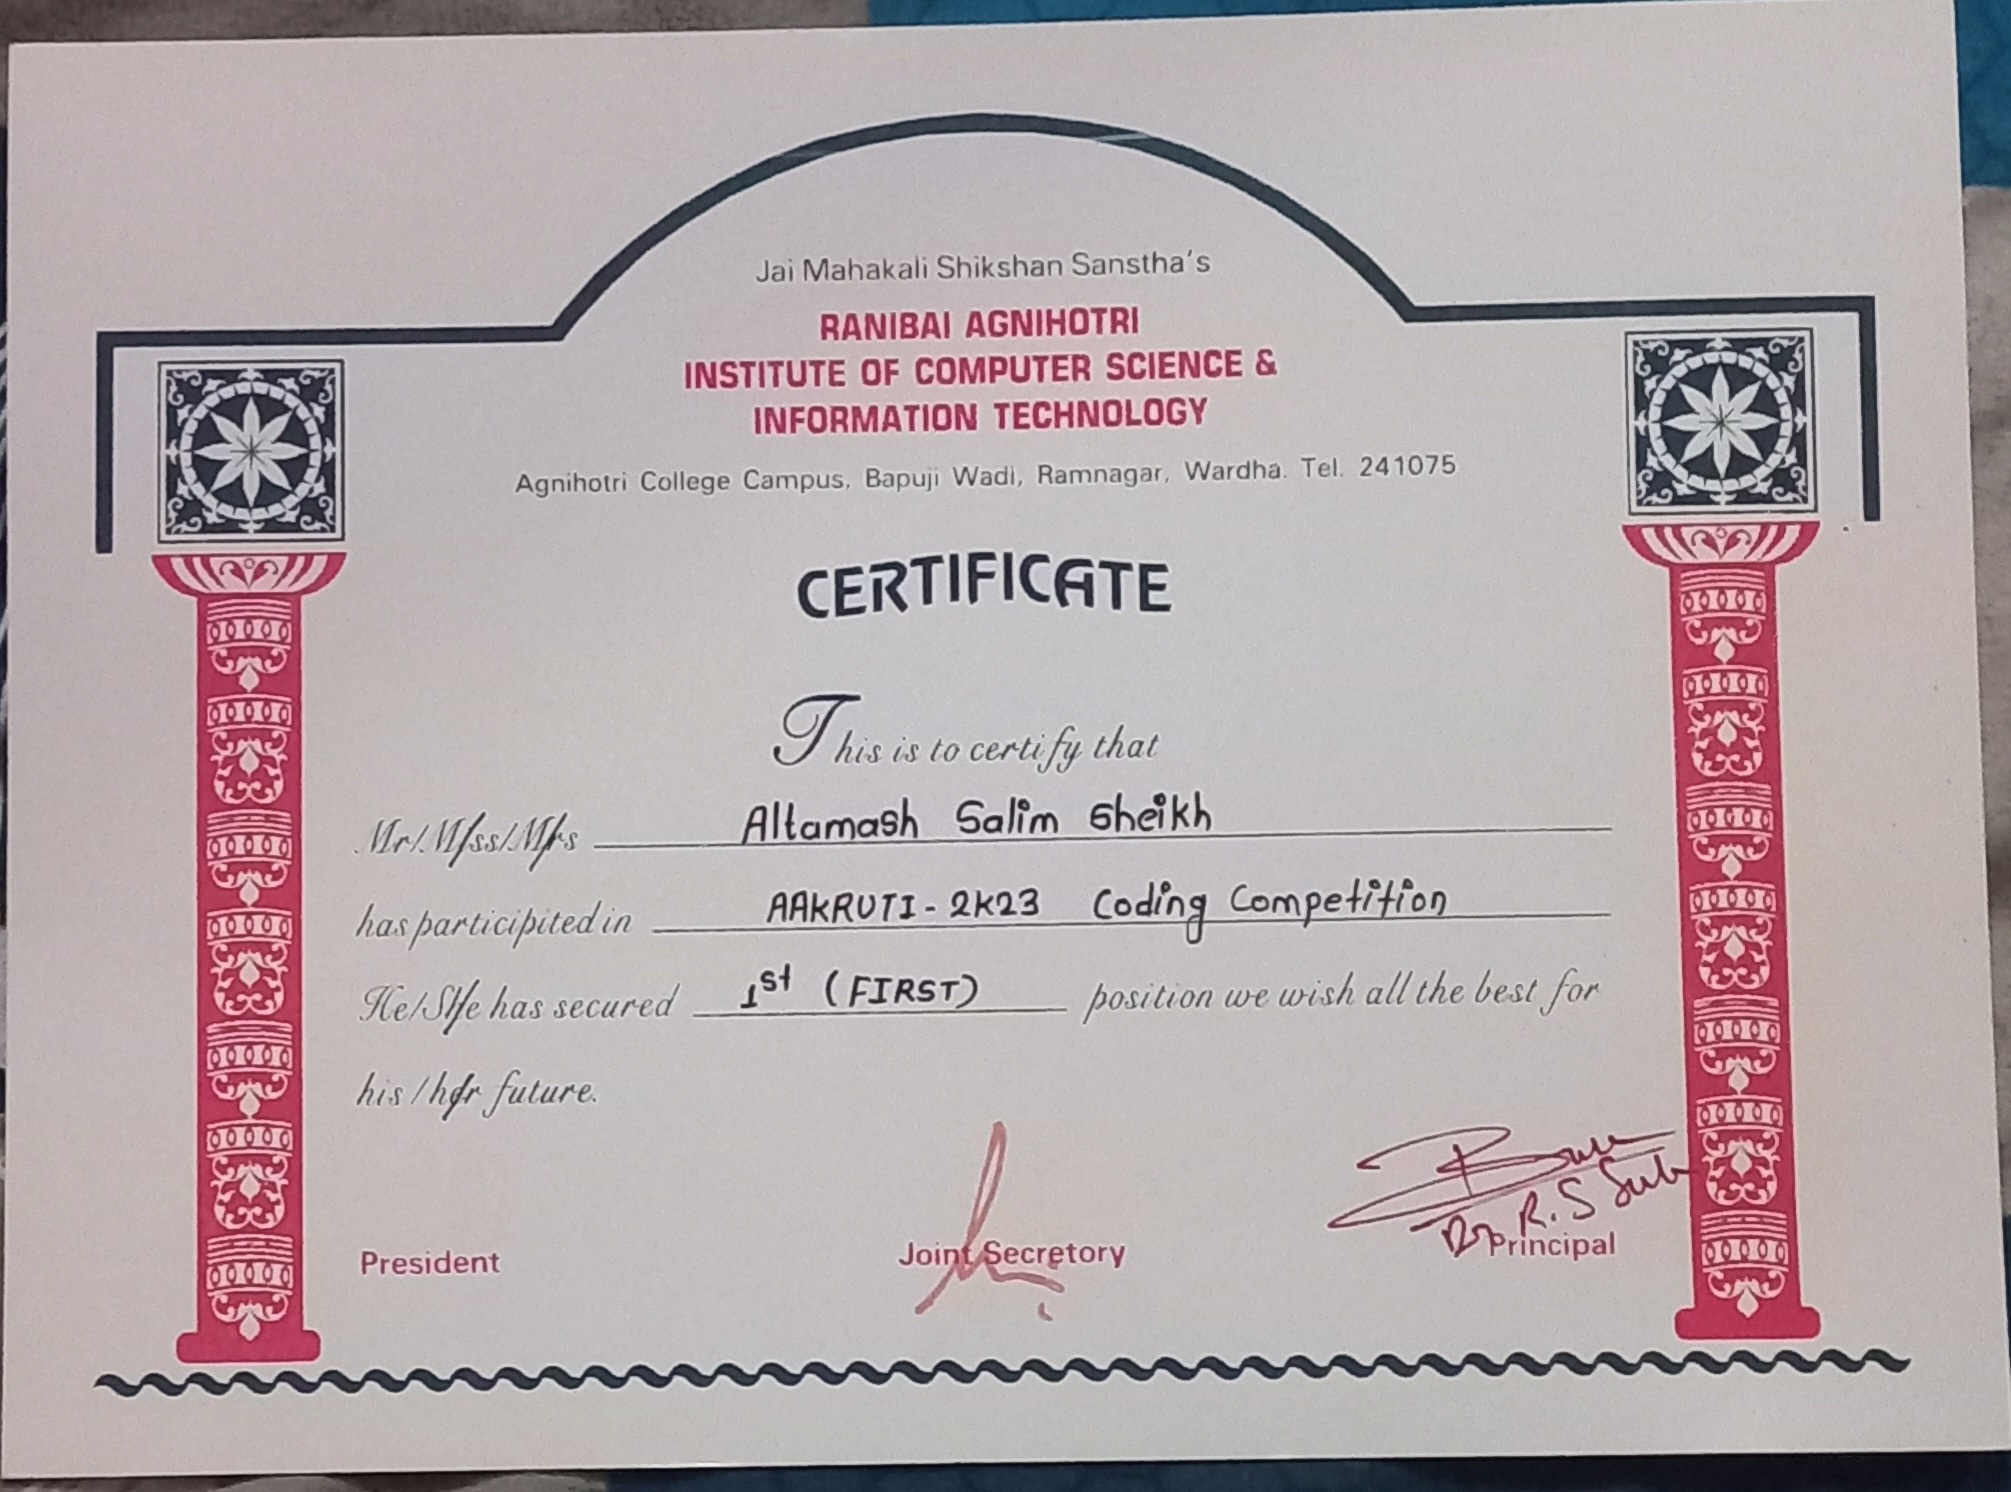 Jai Mahakali Shikshan Sanstha's
RANIBAI AGNIHOTRI
INSTITUTE OF COMPUTER SCIENCE &
INFORMATION TECHNOLOGY
Agnihotri College Campus, Bapuji Wadi, Ramnagar, Wardha. Tel. 241075
CERTIFICATE
This is to certify that
Mr/Miss/Mrs Altamash Salim Sheikh
has participited in AAKRUTI-2K23 Coding Competition
He/She has secured 1st (FIRST) position we wish all the best for
his/her future.
R.S
President Joint Secretory Principal